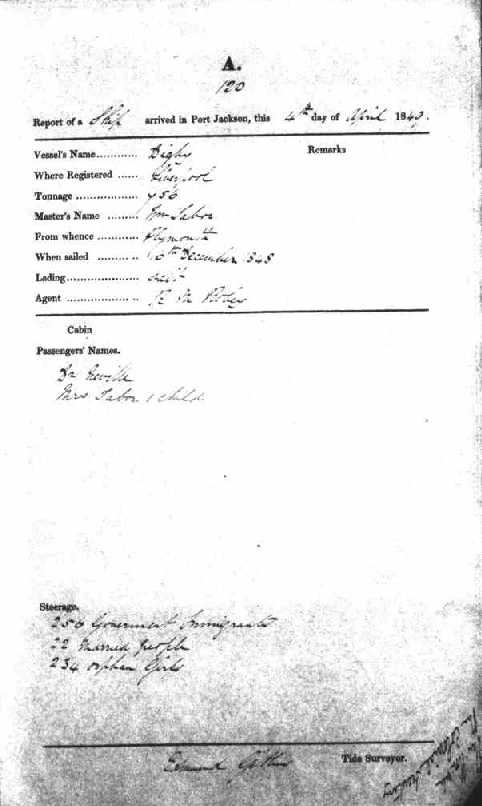 A.
120
Report of a Ship arrived in Port Jackson, this 4th day of April 1849.
Remarks
Vessel's Name............ Digby
Where Registered ...... Liverpool
Tonnage .................. 756
Master's Name ......... Wm Tabor
From whence ............ Plymouth
When sailed .......... December 1848
Lading......................
Agent ....................
Cabin
Passengers' Names.
Dr Neville
Mrs Tabor 1 child
Steerage.
256 Government Immigrants
22 Married people
234 orphan Girls
Edmund Tide Surveyor.